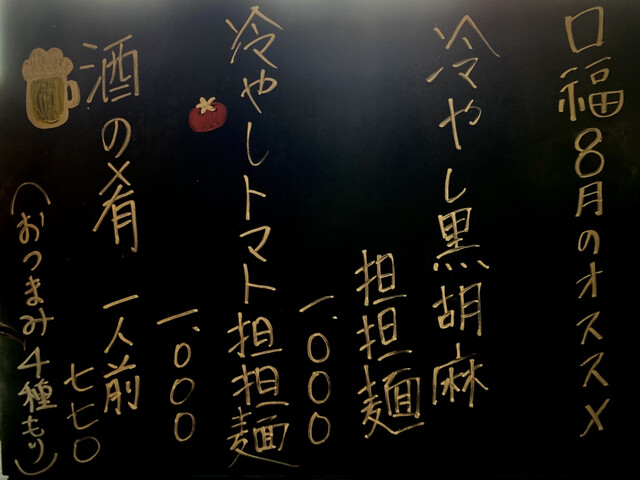 口福8月のオススメ
冷やし黒胡麻
担担麺
一、〇〇〇
冷やしトマト担担麺
一、〇〇〇
酒の肴 一人前
七七〇
（おつまみ4種もり）